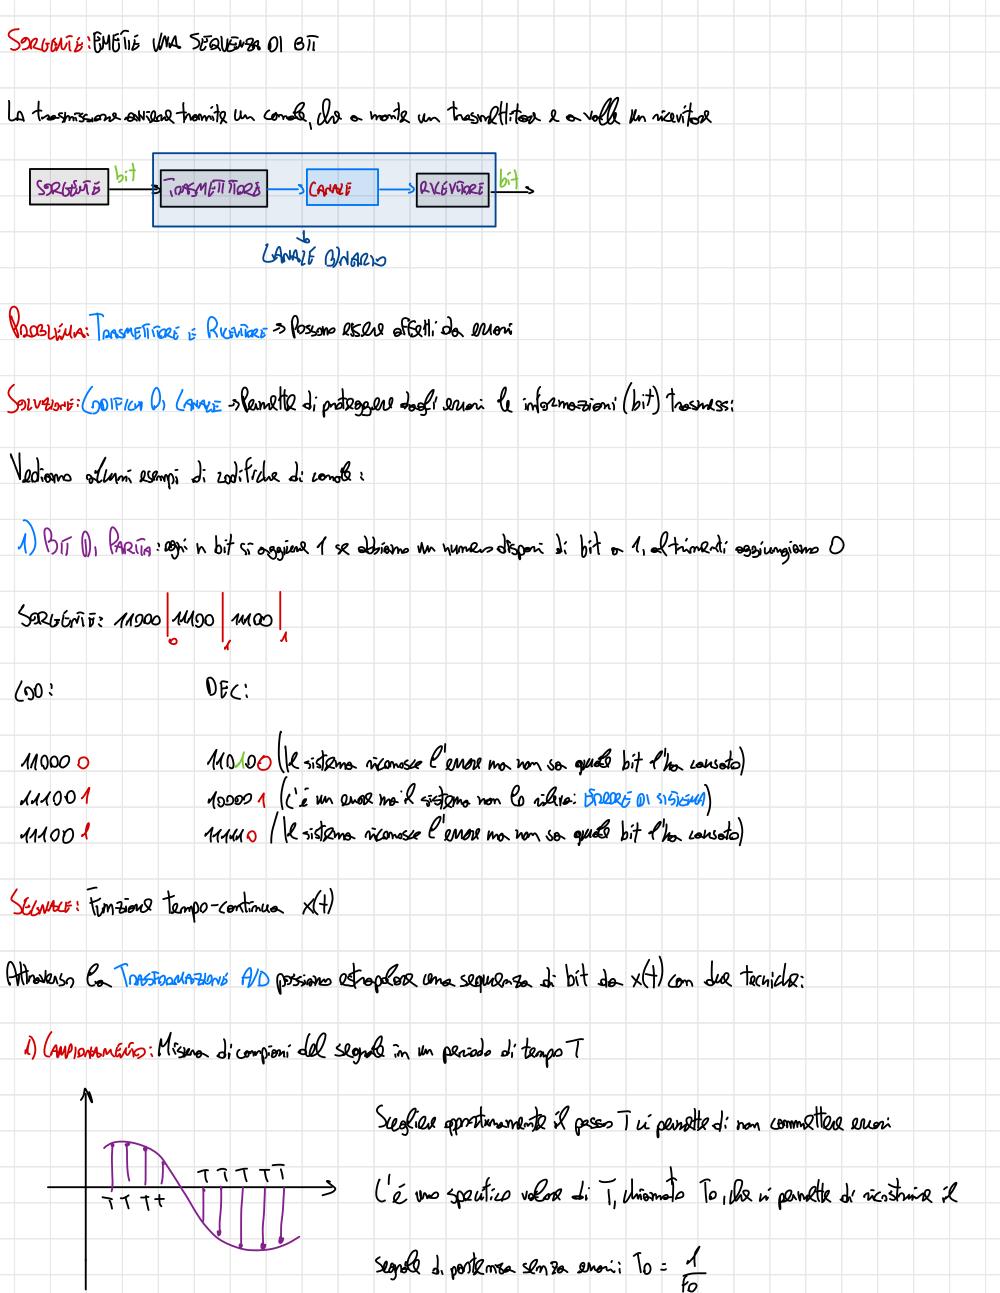 SORGENTE: EMETTE UNA SEQUENZA DI BIT
La trasmissione avviene tramite un canale, che a monte un trasmettitore e a valle un ricevitore
SORGENTE bit TRASMETTITORE CANALE RICEVITORE bit
CANALE BINARIO
PROBLEMA: TRASMETTITORE E RICEVITORE → Possono essere affetti da errori
SOLUZIONE: CODIFICA DI CANALE → Permette di proteggere dagli errori le informazioni (bit) trasmessi
Vediamo alcuni esempi di codifiche di canale:
1) BIT DI PARITA: ogni n bit si aggiunge 1 se abbiamo un numero dispari di bit a 1, altrimenti aggiungiamo 0
SORGENTE: 11000 | 11100 | 11100 |
0 1 1
COD: DEC:
11000 0 11010 0 (Il sistema riconosce l'errore ma non sa quale bit l'ha causato)
11100 1 10000 1 (C'è un errore ma il sistema non lo rileva: ERRORE DI SISTEMA)
11100 1 11110 0 (Il sistema riconosce l'errore ma non sa quale bit l'ha causato)
SEGNALE: Funzione tempo-continua x(t)
Attraverso la TRASFORMAZIONE A/D possiamo estrapolare una sequenza di bit da x(t) con due tecniche:
1) CAMPIONAMENTO: Misura di campioni del segnale in un periodo di tempo T
Scegliere opportunamente il passo T ci permette di non commettere errori
T T T T T
T T T T
C'è uno specifico valore di T, chiamato T0, che ci permette di ricostruire il
segnale di partenza senza errori: T0 = 1/F0